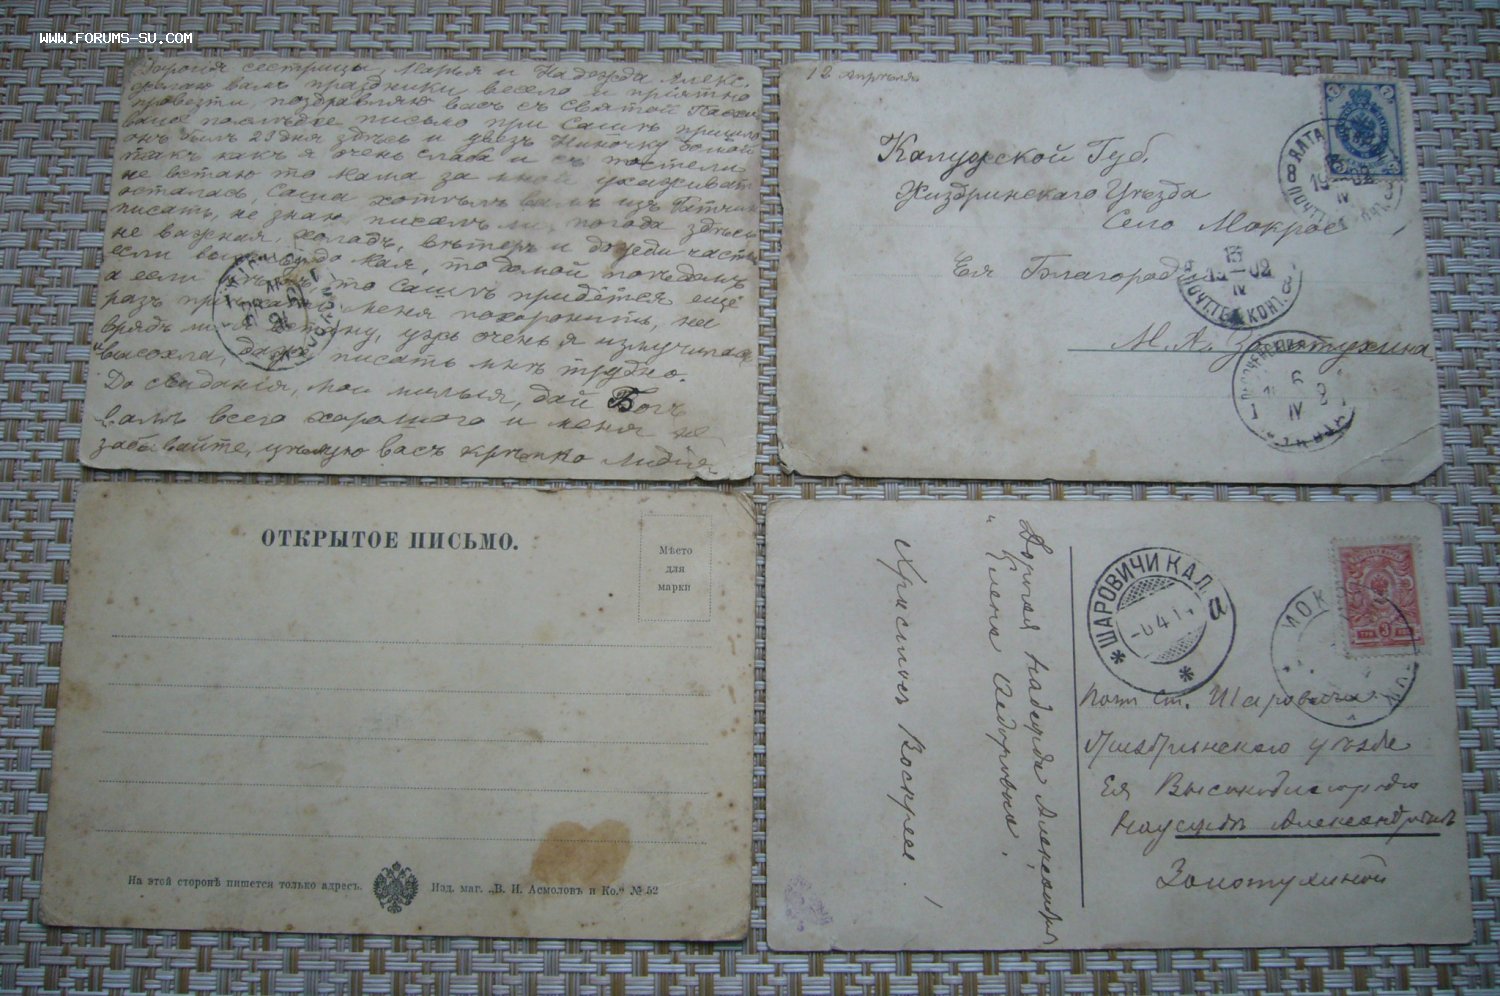 WWW.FORUMS-SU.COM
Дорогія сестрицы Марья и Надежда Алекс.
желаю вамъ праздники весело и пріятно
провезти, поздравляю васъ съ Святой Пасхи
ваше послѣдне письмо при Сашѣ пришло
онъ былъ 2 дня здѣсь и увезъ Ниночку домой
такъ какъ я очень слаба и съ постели
не встаю то мама за мной ухаживать
осталась, Саша хотѣлъ вамъ изъ
писать, не знаю писалъ ли, погода здѣсь
не важная, холодъ, вѣтеръ и дожди часты
если до мая, то домой поѣдемъ
а если то Сашѣ придётся ещё
разъ меня похоронить, на
врядъ ли я ужъ очень я измучилась
высохла, даже писать мнѣ трудно.
До свиданія, мои милыя, дай Богъ
вамъ всего хорошего и меня не
забывайте, цѣлую васъ крѣпко Лидія
12 Апрѣля
Калужской Губ.
Жиздринскаго Уѣзда
Село Мокрое
Ея Благородію
М. А. Золотухина
ЯЛТА
8
ПОЧТ.
IV
13
19—02
IV
ПОЧТ.ТЕЛ.КОНТ.
8
6
IV
1
ОТКРЫТОЕ ПИСЬМО.
Мѣсто
для
марки
На этой сторонѣ пишется только адресъ.
Изд. маг. „В. И. Асмоловъ и Ко.“ № 52
Дорогая Надежда Александровна
и Елена Федоровна.
Христосъ Воскресе!
ШАРОВИЧИ КАЛ.
а
МОК
3
Почт. Ст. Шаровичи
Жиздринскаго уѣзда
Ея Высокоблагородію
Надеждѣ Александровнѣ
Золотухиной